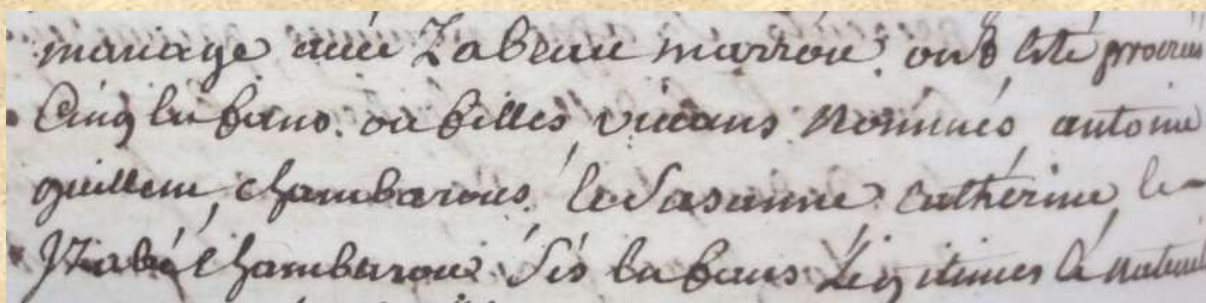 mariage auec Zabeau marrou, ont Esté procrees
Cinq Enfans. ou filles, viuans Nommés, antoine
guillem, chambarous, Et Susanne Cathérine Et
Izabé Chambarou, ses Enfans Légitimes Et naturel